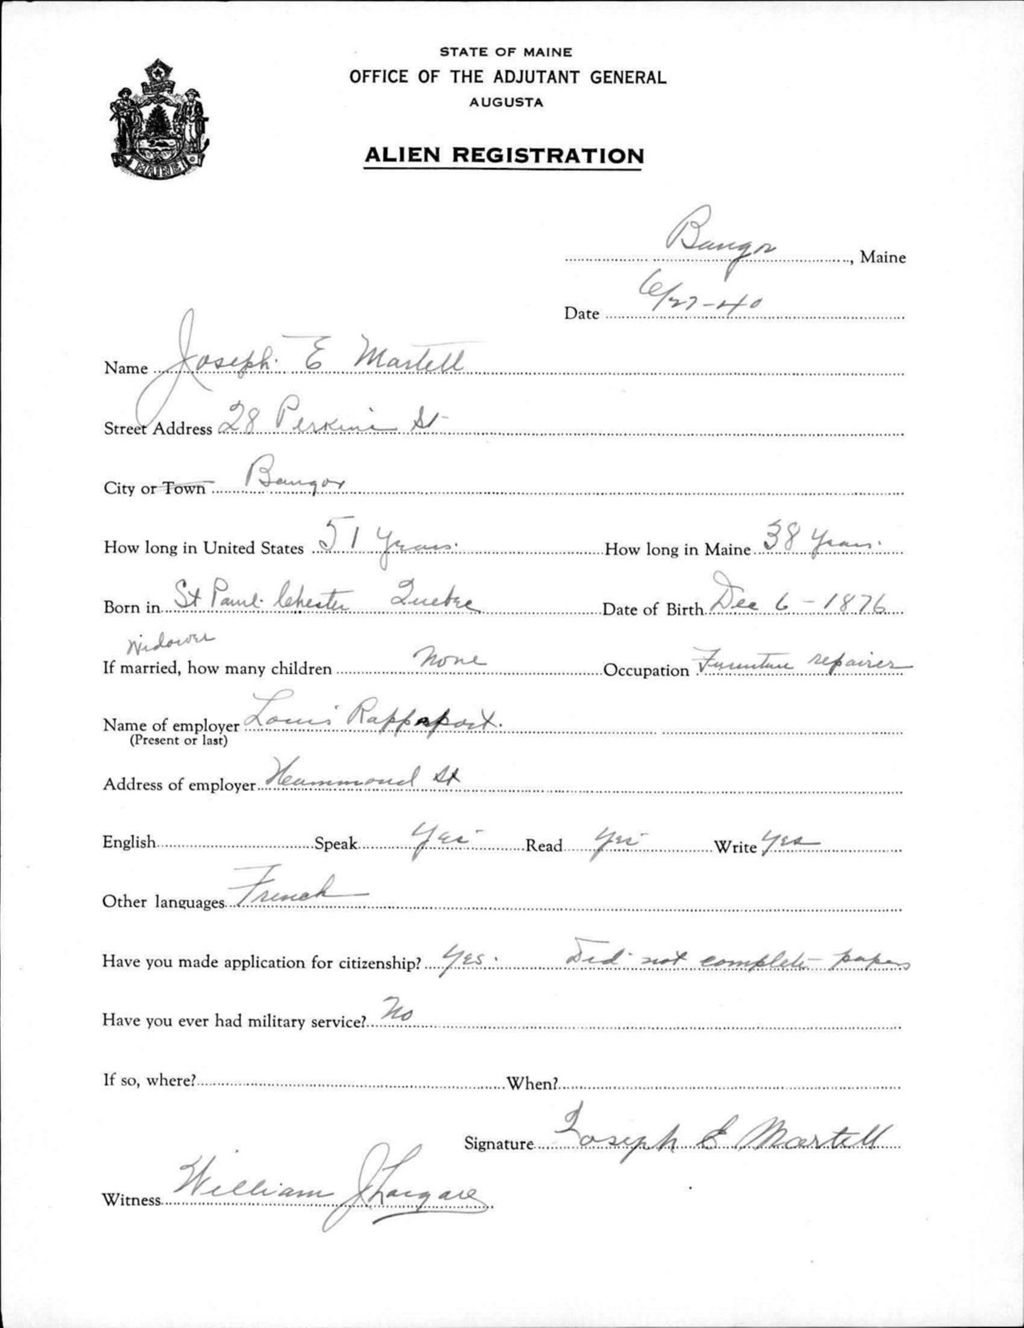 STATE OF MAINE
OFFICE OF THE ADJUTANT GENERAL
AUGUSTA
ALIEN REGISTRATION
MAINE
Bangor, Maine
Date 6/27-40
Name Joseph E Martell
Street Address 28 Perkins St
City or Town Bangor
How long in United States 51 Years. How long in Maine 38 Years.
Born in St Paul Chester Quebec Date of Birth Dec 6-1876
Widower
If married, how many children None Occupation Furniture repairer
Name of employer Louis Rappaport.
(Present or last)
Address of employer Hammond St
English Speak Yes Read Yes Write Yes
Other languages French
Have you made application for citizenship? Yes. Did not complete papers
Have you ever had military service? No
If so, where? When?
Signature Joseph E Martell
Witness William J